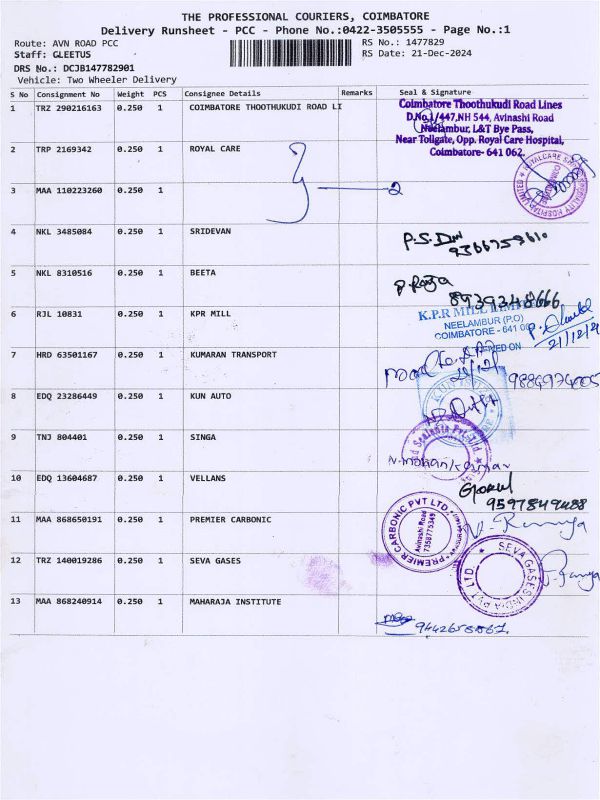 THE PROFESSIONAL COURIERS, COIMBATORE
Delivery Runsheet - PCC - Phone No.:0422-3505555 - Page No.:1
Route: AVN ROAD PCC
RS No.: 1477829
Staff: GLEETUS
RS Date: 21-Dec-2024
DRS No.: DCJB147782901
Vehicle: Two Wheeler Delivery
S No Consignment No Weight PCS Consignee Details Remarks Seal & Signature
1 TRZ 290216163 0.250 1 COIMBATORE THOOTHUKUDI ROAD LI
Coimbatore Thoothukudi Road Lines
D.No.1/447,NH 544, Avinashi Road
Neelambur, L&T Bye Pass,
Near Tollgate, Opp. Royal Care Hospital,
Coimbatore- 641 062.
2 TRP 2169342 0.250 1 ROYAL CARE
3 MAA 110223260 0.250 1
2
4 NKL 3485084 0.250 1 SRIDEVAN
9366759610
5 NKL 8310516 0.250 1 BEETA
P. Raja
8939348666
6 RJL 10831 0.250 1 KPR MILL
K.P.R MILL LIMITED
NEELAMBUR (P.O)
COIMBATORE - 641 062
21/12/24
7 HRD 63501167 0.250 1 KUMARAN TRANSPORT
8 EDQ 23286449 0.250 1 KUN AUTO
9 TNJ 804401 0.250 1 SINGA
N. mohan kumar
10 EDQ 13604687 0.250 1 VELLANS
Gokul
9597849488
11 MAA 868650191 0.250 1 PREMIER CARBONIC
PREMIER CARBONIC PVT LTD.
Avinashi Road
7358775349
12 TRZ 140019286 0.250 1 SEVA GASES
SEVA GASES INDIA PVT LTD.
13 MAA 868240914 0.250 1 MAHARAJA INSTITUTE